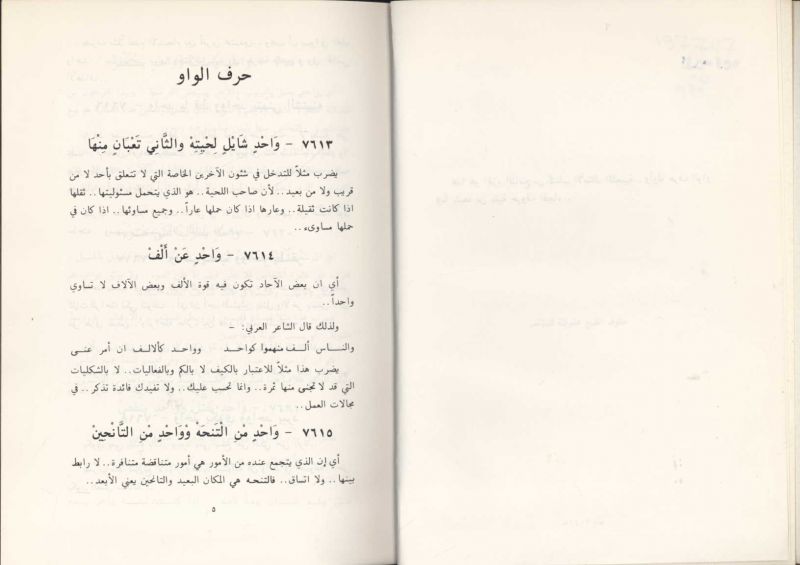 حرف الواو
٧٦١٣ - وَاحْدٍ شَايْلٍ لِحْيِتِهْ والثَّانِي تَعْبَانٍ مِنْهَا
يضرب مثلاً للتدخل في شئون الآخرين الخاصة التي لا تتعلق بأحد لا من
قريب ولا من بعيد.. لأن صاحب اللحية.. هو الذي يتحمل مسئوليتها.. ثقلها
اذا كانت ثقيلة.. وعارها اذا كان حملها عاراً.. وجميع مساوئها.. اذا كان في
حملها مساوىء..
٧٦١٤ - وَاحْدٍ عَنْ أَلْفْ
أي ان بعض الآحاد تكون فيه قوة الألف وبعض الآلاف لا تساوي
واحداً..
ولذلك قال الشاعر العربي: -
والناس ألـف منهموا كواحـد وواحـد كالالـف ان أمر عنـى
يضرب هذا مثلاً للاعتبار بالكيف لا بالكم وبالفعاليات.. لا بالشكليات
التي قد لا تجنى منها ثمرة.. وانما تحسب عليك.. ولا تفيدك فائدة تذكر.. في
مجالات العمل..
٧٦١٥ - وَاحْدٍ مْنِ الْتَنحَهْ وْوَاحْدٍ مْنِ التَّانْحِينْ
أي إن الذي يتجمع عنده من الأمور هي أمور متناقضة متنافرة.. لا رابط
بينها.. ولا اتساق.. فالتنحه هي المكان البعيد والتانحين يعني الأبعد..
٥